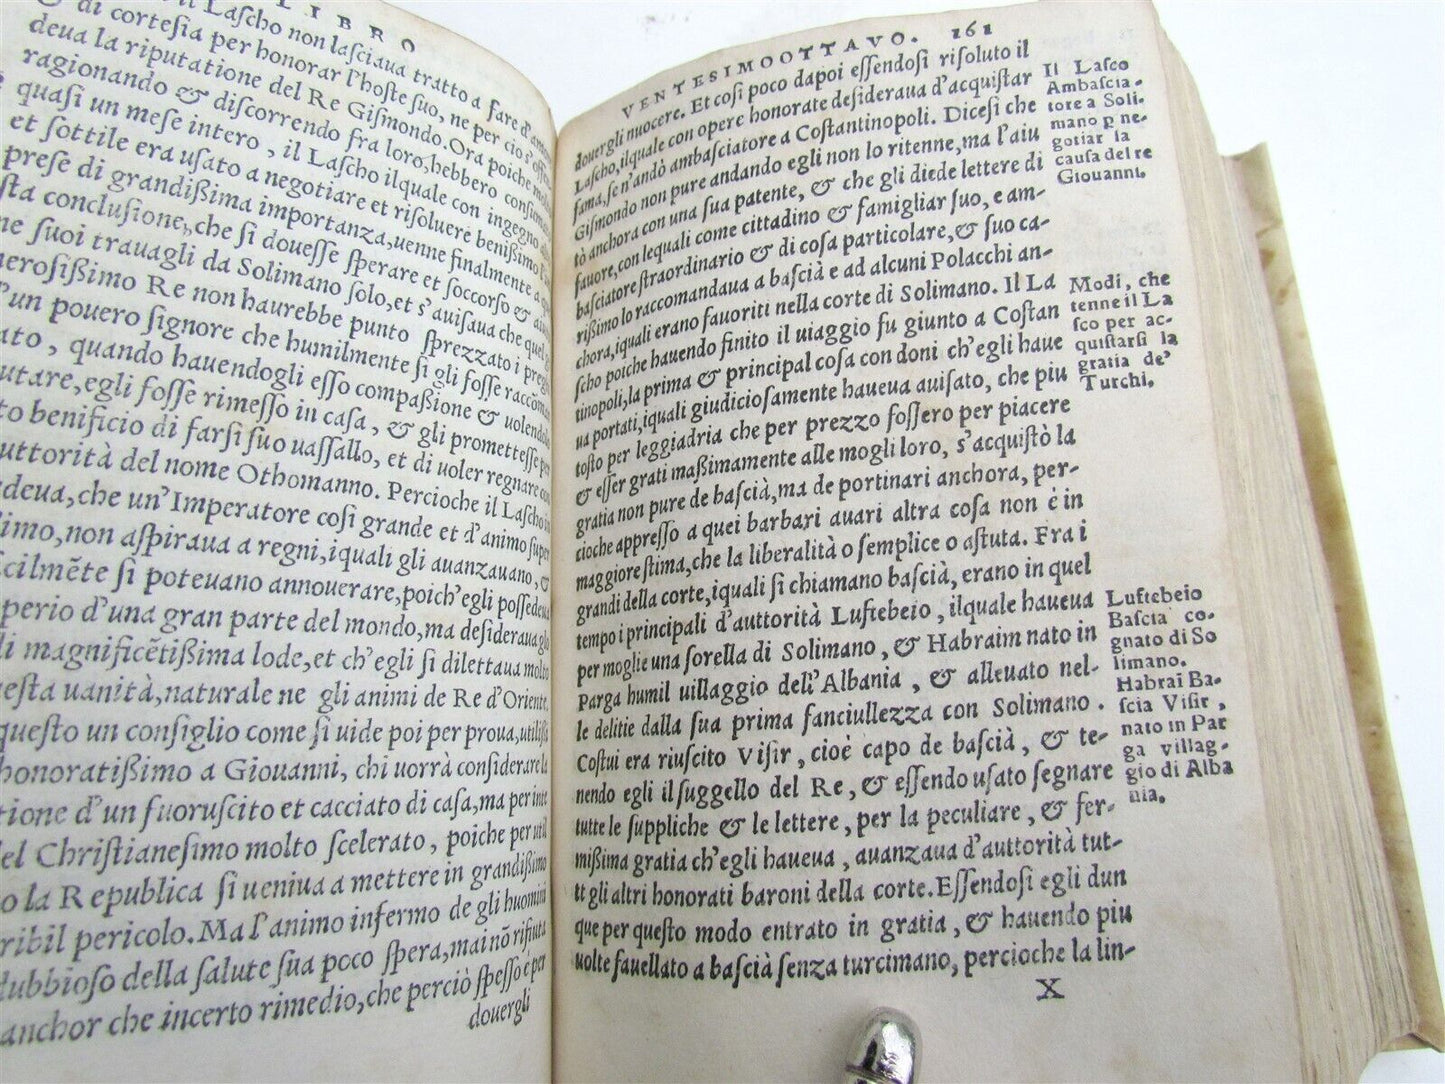 LIBRO
il Laſcho non laſciaua tratto a fare d'
di corteſia per honorar l'hoſte ſuo, ne per cio s'
deua la riputatione del Re Giſmondo. Ora poiche
ragionando & diſcorrendo fra loro, hebbero
quaſi un meſe intero, il Laſcho ilquale con ingegno
et ſottile era uſato a negotiare et riſoluere beniſſimo
preſe di grandißima importanza, uenne finalmente a
ſta concluſione, che ſi doueſſe ſperare et ſoccorſo &
ne ſuoi trauagli da Solimano ſolo, et s'auiſaua che quel
neroſißimo Re non haurebbe punto ſprezzato i
d'un pouero ſignore che humilmente ſi gli foſſe
ato, quando hauendogli eſſo compaßione & uolendolo
utare, egli foſſe rimeſſo in caſa, & gli prometteſſe per
to benificio di farſi ſuo uaſſallo, et di uoler regnare con
uttorità del nome Othomanno. Percioche il Laſcho
deua, che un'Imperatore coſi grande et d'animo ſuper
limo, non aſpiraua a regni, iquali gli auanzauano, &
cilmẽte ſi poteuano annouerare, poich'egli poſſedeua
perio d'una gran parte del mondo, ma deſideraua
di magnificẽtißima lode, et ch'egli ſi dilettaua molto
ueſta uanità, naturale ne gli animi de Re d'Oriente.
queſto un conſiglio come ſi uide poi per proua, utiliſſi
honoratißimo a Giouanni, chi uorrà conſiderare la
tione d'un fuoruſcito et cacciato di caſa, ma per
del Chriſtianeſimo molto ſcelerato, poiche per util
o la Republica ſi ueniua a mettere in grandißimo
ribil pericolo. Ma l'animo infermo de gli huomini
dubbioſo della ſalute ſua poco ſpera, mai nõ rifiuta
anchor che incerto rimedio, che perciò ſpeſſo è per
douergli
VENTESIMOOTTAVO. 161
douergli nuocere. Et coſi poco dapoi eſſendoſi riſoluto il
Laſcho, ilquale con opere honorate deſideraua d'acquiſtar
fama, ſe n'andò ambaſciatore a Coſtantinopoli. Diceſi che
Giſmondo non pure andando egli non lo ritenne, ma l'aiu
tò anchora con una ſua patente, & che gli diede lettere di
fauore, con lequali come cittadino & famigliar ſuo, e am-
baſciatore ſtraordinario & di coſa particolare, & ſuo ca-
rißimo lo raccomandaua a baſcià e ad alcuni Polacchi an-
chora, iquali erano fauoriti nella corte di Solimano. Il La
ſcho poiche hauendo finito il uiaggio fu giunto a Coſtan
tinopoli, la prima & principal coſa con doni ch'egli haue
ua portati, iquali giudicioſamente haueua auiſato, che piu
toſto per leggiadria che per prezzo foſſero per piacere
& eſſer grati maßimamente alle mogli loro, s'acquiſtò la
gratia non pure de baſcià, ma de portinari anchora, per-
cioche appreſſo a quei barbari auari altra coſa non è in
maggiore ſtima, che la liberalità o ſemplice o aſtuta. Fra i
grandi della corte, iquali ſi chiamano baſcià, erano in quel
tempo i principali d'auttorità Luftebeio, ilquale haueua
per moglie una ſorella di Solimano, & Habraim nato in
Parga humil uillaggio dell'Albania, & alleuato nel-
le delitie dalla ſua prima fanciullezza con Solimano.
Coſtui era riuſcito Viſir, cioè capo de baſcià, & te-
nendo egli il ſuggello del Re, & eſſendo uſato ſegnare
tutte le ſuppliche & le lettere, per la peculiare, & fer-
mißima gratia ch'egli haueua, auanzaua d'auttorità tut-
ti gli altri honorati baroni della corte. Eſſendoſi egli dun
que per queſto modo entrato in gratia, & hauendo piu
uolte fauellato a baſcià ſenza turcimano, percioche la lin-
X
Il Laſco
Ambaſcia-
tore a Soli-
mano p ne-
gotiar la
cauſa del re
Giouanni.
Modi, che
tenne il La
ſco per ac-
quiſtarſi la
gratia de'
Turchi.
Luftebeio
Baſcia co-
gnato di So
limano.
Habraĩ Ba-
ſcia Viſir,
nato in Par
ga villag-
gio di Alba
nia.